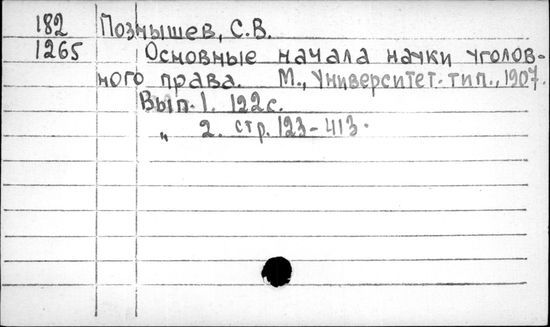 182 Познышев, С.В.
1265 Основные начала науки уголов-
ного права. М., Университет. тип., 1907.
Вып. 1. 122 с.
„ 2. стр. 123-413.